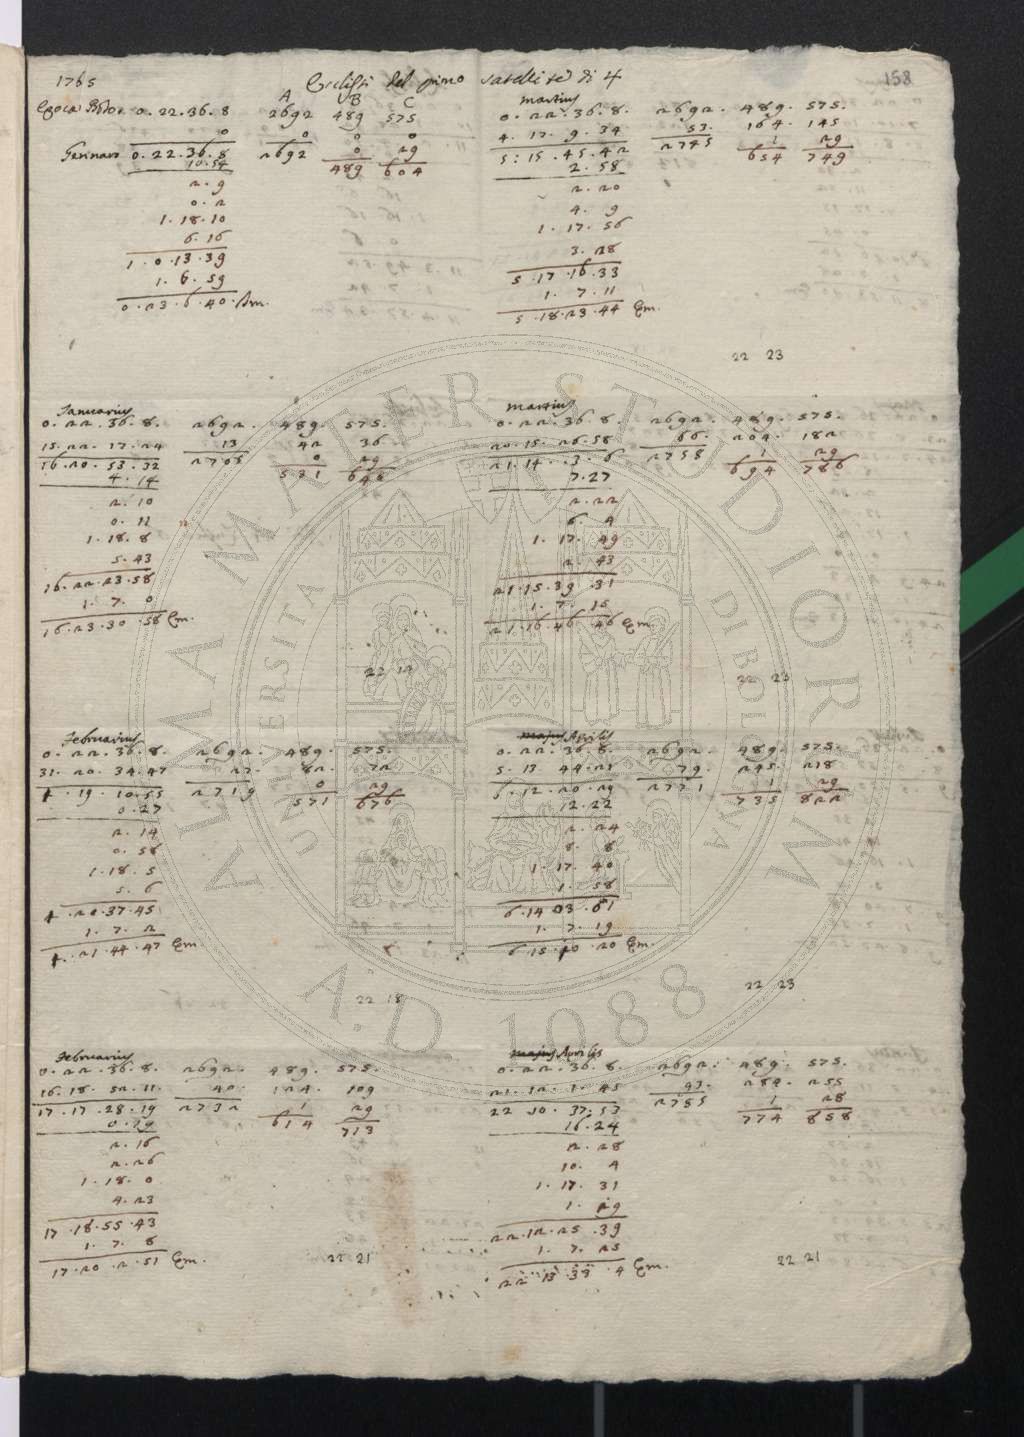 1765 Eclissi del primo satellite di ♃ 158
A B C
Epoca 0.22.36.8 2692 489 575
0 0 0 0
Gennaro 0.22.36.8 2692 0 29
10.54 489 604
2.9
0.2
1.18.10
6.16
1.0.13.39
1.6.59
0.23.6.40. Im.
Martius
0.22.36.8. 2692. 489. 575.
4.17.9.34 53. 164. 145
5.15.45.42 2745 1 29
2.58 654 749
2.20
4.9
1.17.56
3.28
5.17.16.33
1.7.11
5.18.23.44 Em.
22 23
Januarius
0.22.36.8. 2692. 489. 575.
15.22.17.24 13 42 36
16.20.53.32 2705 0 29
4.14 531 640
2.10
0.11
1.18.8
5.43
16.22.23.58
1.7.0
16.23.30.58 Em.
22 19
Martius
0.22.36.8. 2692. 489. 575.
20.15.26.58 66. 204. 182
21.14.3.6 2758 1 29
7.27 694 786
2.22
6.4
1.17.49
2.43
21.15.39.31
1.7.15
21.16.46.46 Em.
22 23
Februarius
0.22.36.8. 2692. 489. 575.
31.20.34.47 27. 82. 72
1.19.10.55 2719 0 29
0.27 571 676
2.14
0.58
1.18.5
5.6
1.20.37.45
1.7.2
1.21.44.47 Em.
22 18
Majus Aprilis
0.22.36.8. 2692. 489. 575.
5.13.44.21 79. 245. 218
6.12.20.29 2771 1 29
12.22 735 822
2.24
8.8
1.17.40
1.58
6.14.03.01
1.7.19
6.15.10.20 Em.
22 23
Februarius
0.22.36.8. 2692. 489. 575.
16.18.52.11. 40. 124. 109
17.17.28.19 2732 1 29
0.29 614 713
2.16
2.26
1.18.0
4.23
17.18.55.43
1.7.8
17.20.2.51 Em.
22 21
Majus Aprilis
0.22.36.8. 2692. 489. 575.
21.12.1.45 93. 284. 255
22.10.37.53 2785 1 28
16.24 774 858
2.28
10.4
1.17.31
1.29
22.12.25.39
1.7.25
22.13.33.4 Em.
22 21
ALMA MATER STUDIORUM
UNIVERSITÀ DI BOLOGNA
A.D. 1088